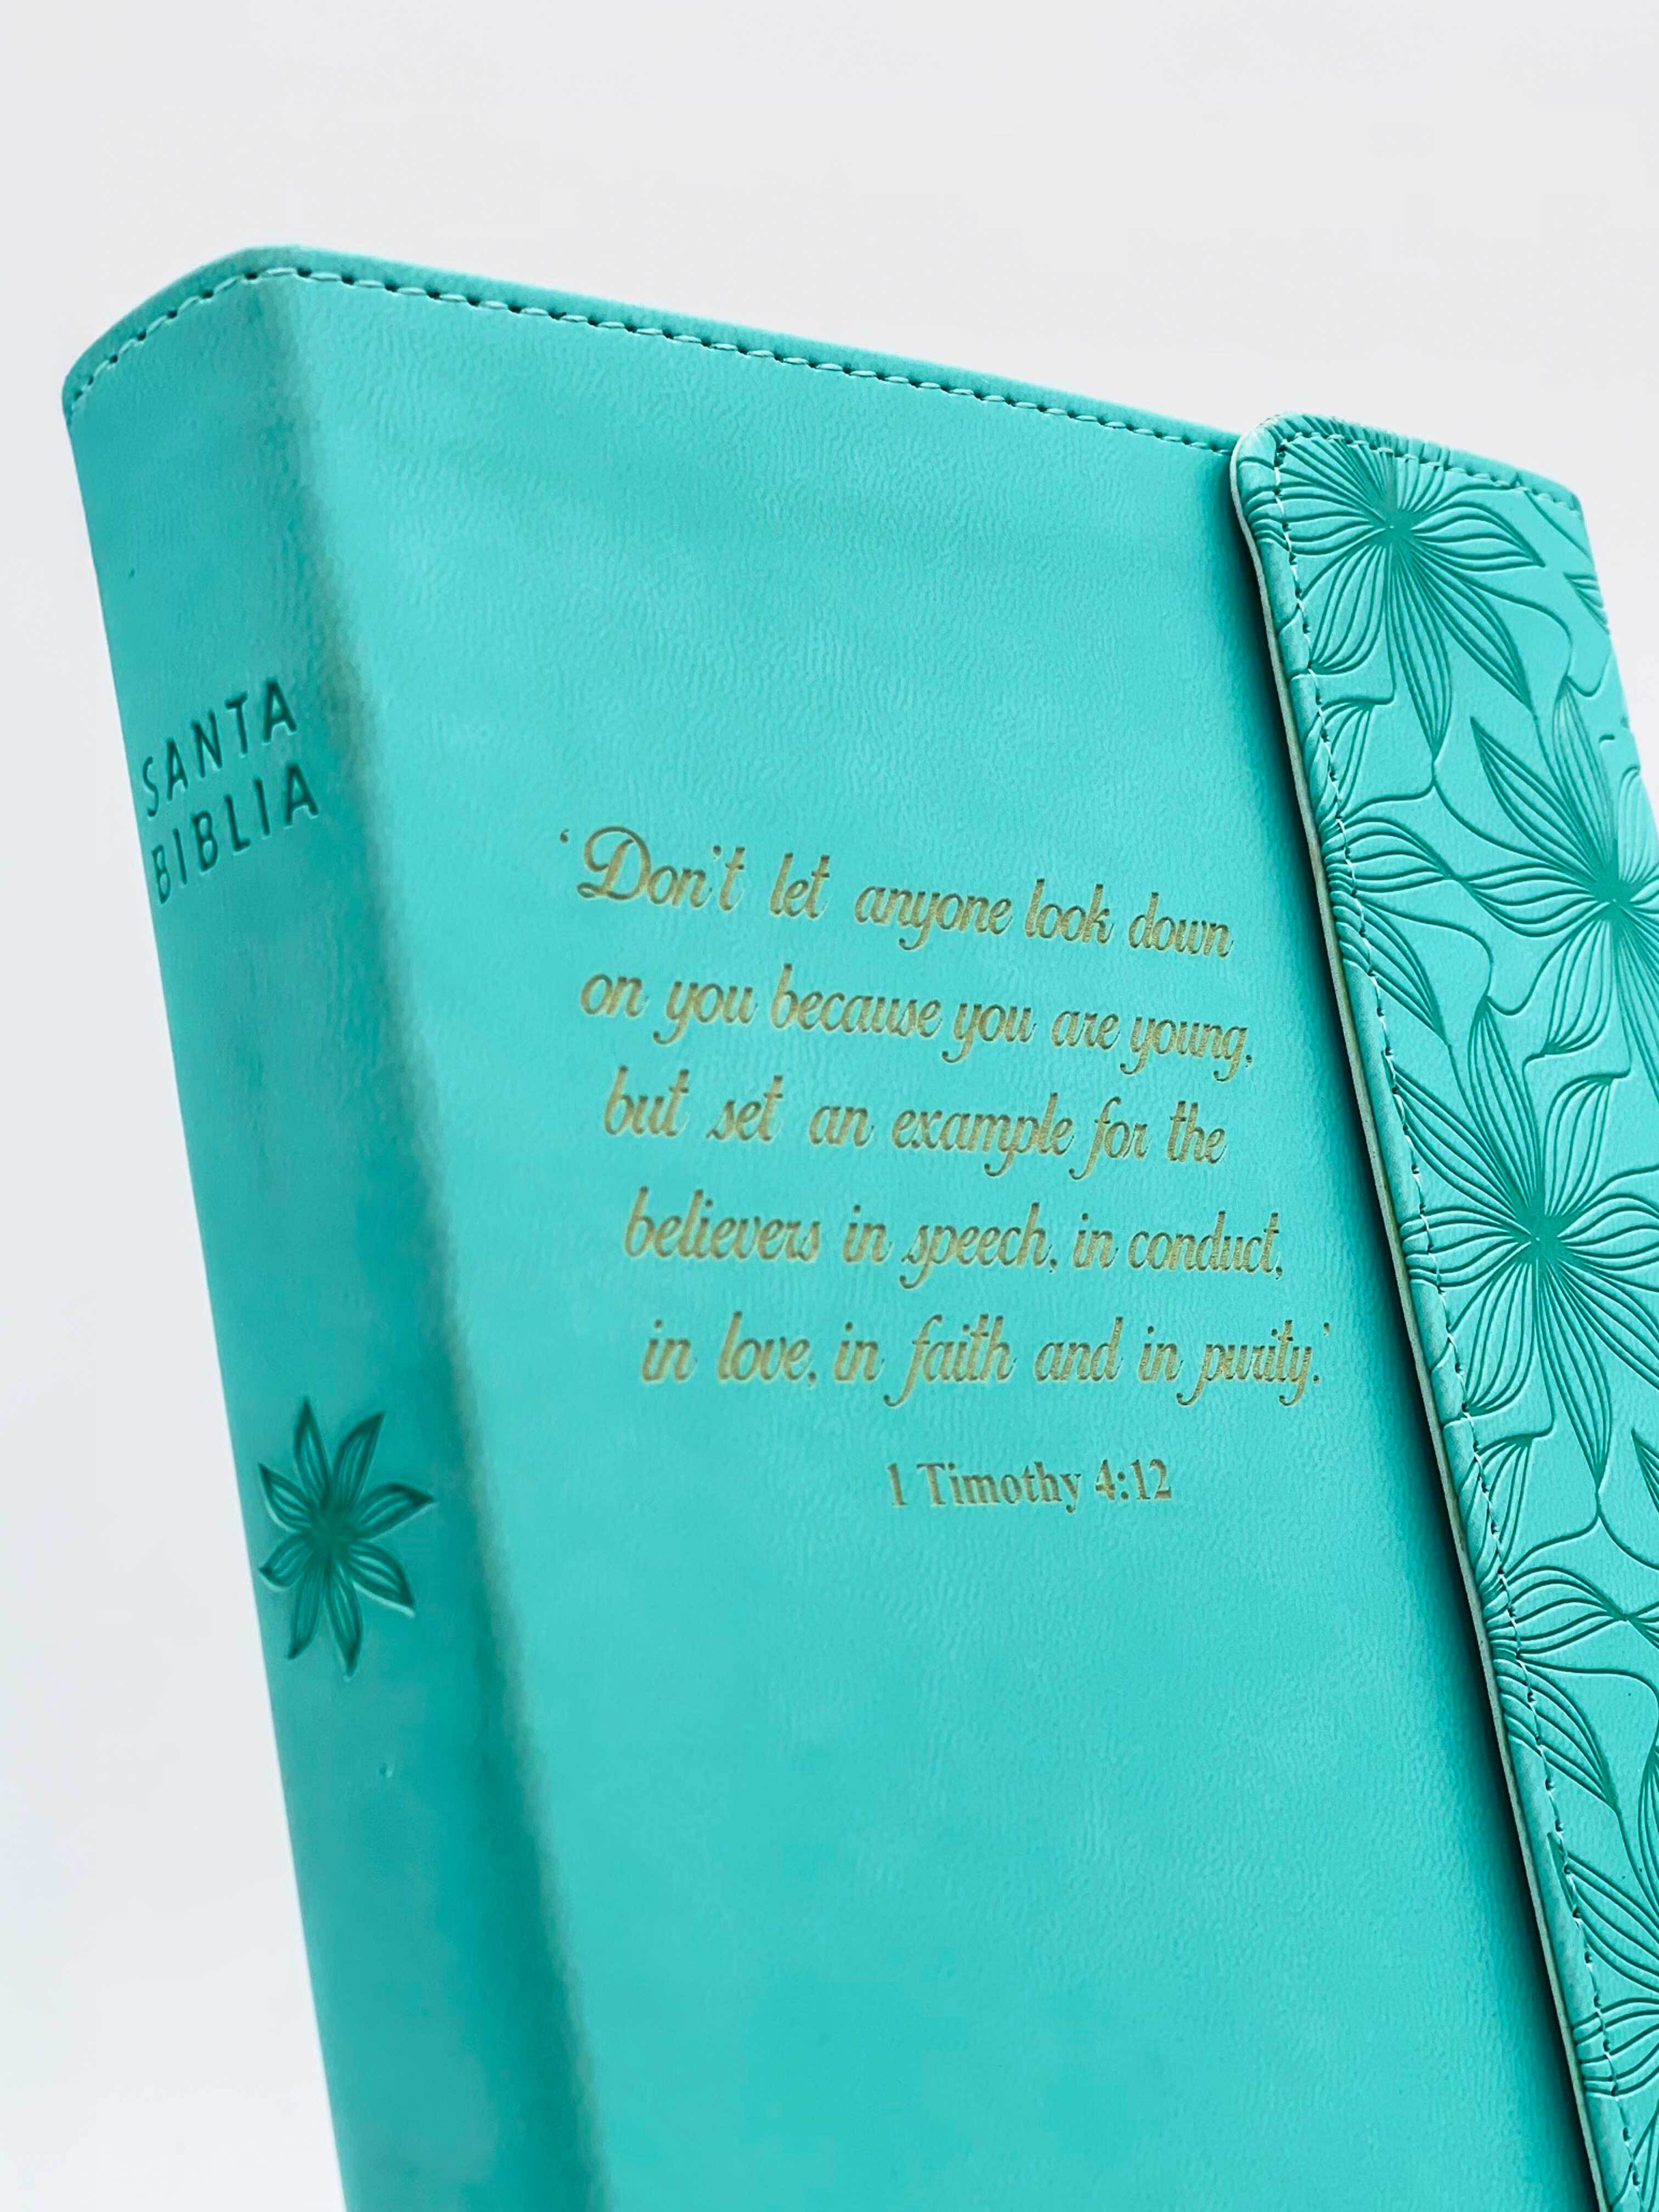 SANTA
BIBLIA
‘Don’t let anyone look down
on you because you are young,
but set an example for the
believers in speech, in conduct,
in love, in faith and in purity.’
1 Timothy 4:12